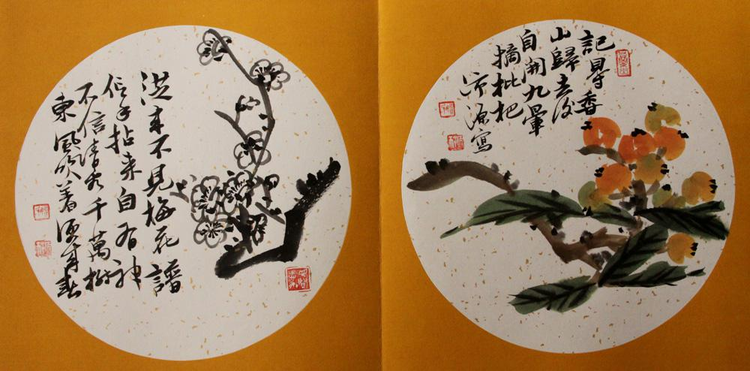 從来不見梅花譜
信手拈来自有神
不信請看千萬樹
東風吹着便成春
記得香
山歸去後
自開九
摘枇杷
寫